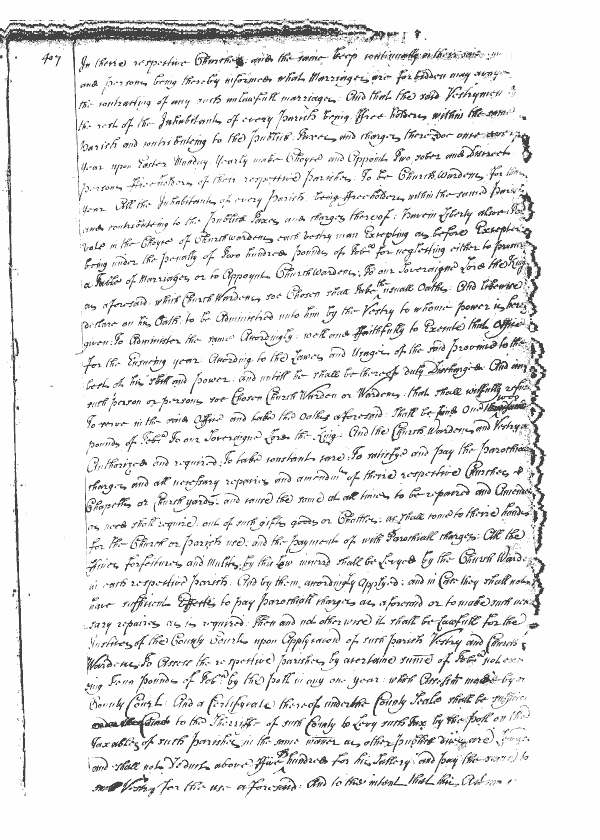 407
In theire respective Churches and the same keep continually in theire
and persons being thereby informed what Marriages are forbidden may avoyd
the contracting of any such unlawfull marriages. And that the said Vestrymen &
the rest of the Inhabitants of every parish being ffree holders within the same
parish and contributeing to the publick Taxes and charges thereof doe once every
year upon Easter Munday Yearly make Choyce and Appoint Two sober and Discreet
persons ffreeholders of their respective parishes To be Church Wardens for that
year. All the Inhabitants of every parish being ffreeholders within the same parish
and contributeing to the publick Taxes and charges thereof: haveing Liberty alsoe To
vote in the Choyce of Churchwardens each vestry man Excepting as before Excepted
being under the penalty of Two hundred pounds of Tobo for neglecting either to provide
a Table of Marriages or to Appoynt Church Wardens To our Soveraigne Lord the King
as aforesaid. which Church Wardens soe Chosen shall Take the usuall Oaths. And likewise
declare on his Oath to be Administred unto him by the Vestry to whome power is hereby
given To Administer the same Accordingly: well and ffaithfully to Execute that Office
For the Ensueing year According to the Lawes and Usages of the said Province to the
best of his skill and power: and untill he shall be thereof duly Discharged And any
such person or persons soe Chosen Church Warden or Wardens: that shall wilfully refuse
To serve in the said Office and take the Oaths aforesaid: shall be fined One thousand
pounds of Tobo To our Soveraigne Lord the King. And the Church Wardens and Vestry are
Authorized and required To take constant care To satisfye and pay the parochiall
charges and all necessary repaires and amendmts of theire respective Churches &
Chapells or Church yards: and cause the same at all times to be repaired and Amended
as need shall require. out of such gifts goods or Chattles: as shall come to theire hands
for the Church or parish use: and the payment of such Parochiall charges: All the
ffines forfeitures and Mulcts by this Law incurred shall be Levyed by the Church Wardens
in each respective parish. And by them accordingly Applyed: and in Case they shall not
have sufficient Effects to pay parochiall charges as aforesaid or to make such neces
sary repaires as is required: then and not otherwise it shall be Lawfull for the
Justices of the County Courts upon Applycacon of such parish Vestry and Church
Wardens To Assess the respective parishes by a certaine sume of Tobo not exce
ding Tenn pounds of Tobo by the poll in any one year: which Assessmt made by
County Court: And a Certificate thereof under the County Seale shall be sufficient
to the Sherriffe of such County to Levy such Tax by the poll on the
Taxables of such parishes in the same maner as other publick dues are Levyed
and shall not Deduct above ffive P hundred for his Sallery: and pay the same to
Vestry for the use aforesaid: And to the intent that his